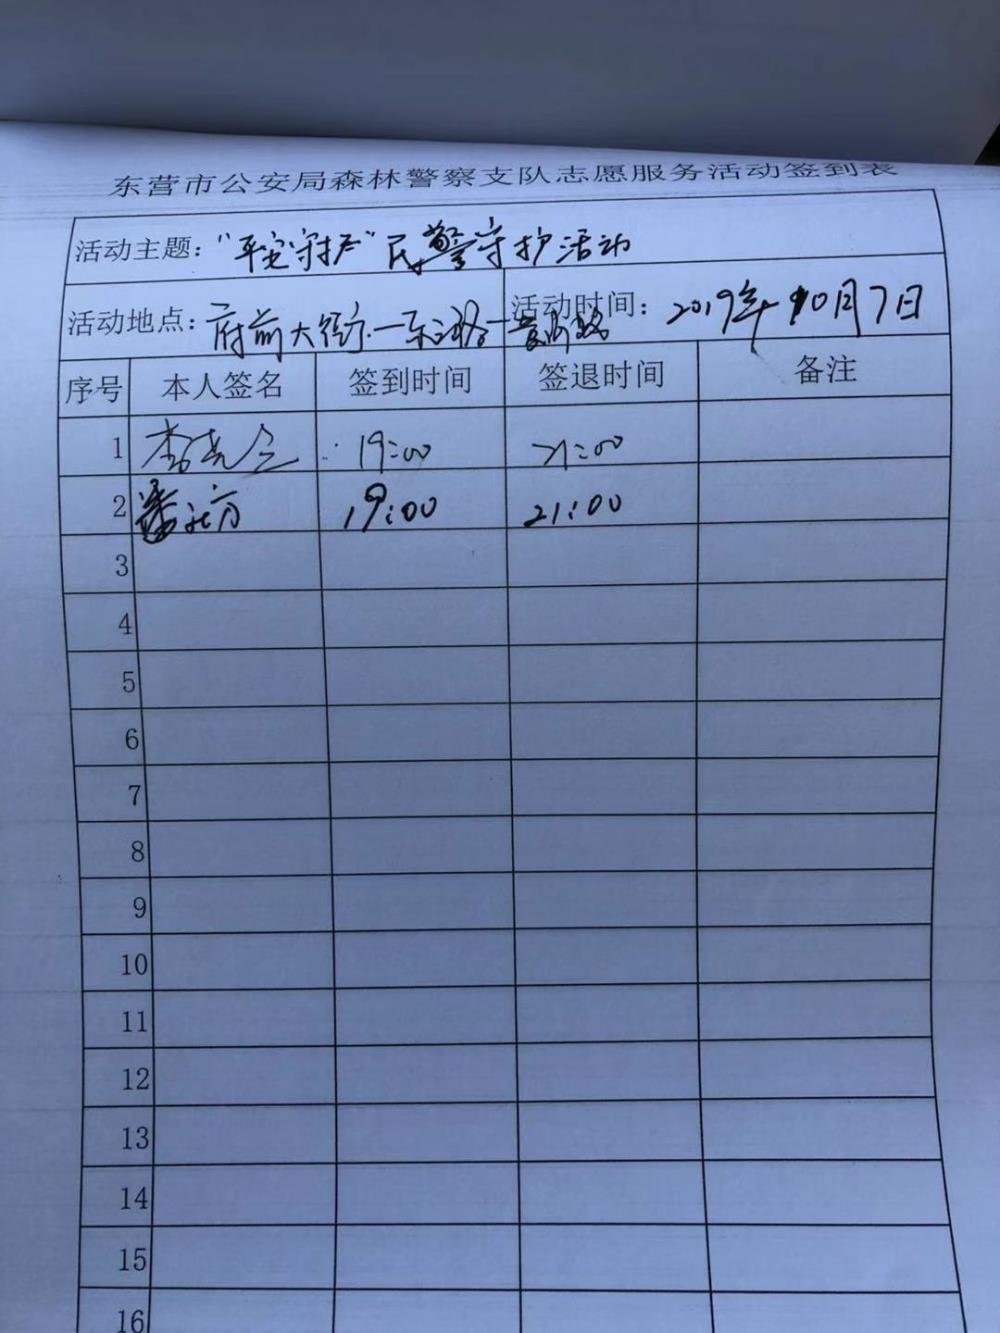 东营市公安局森林警察支队志愿服务活动签到表
活动主题："平安守护"民警守护活动
活动地点：府前大街一东三路一 活动时间：2019年10月7日
序号 本人签名 签到时间 签退时间 备注
1 李 19:00 21:00
2 19:00 21:00
3
4
5
6
7
8
9
10
11
12
13
14
15
16